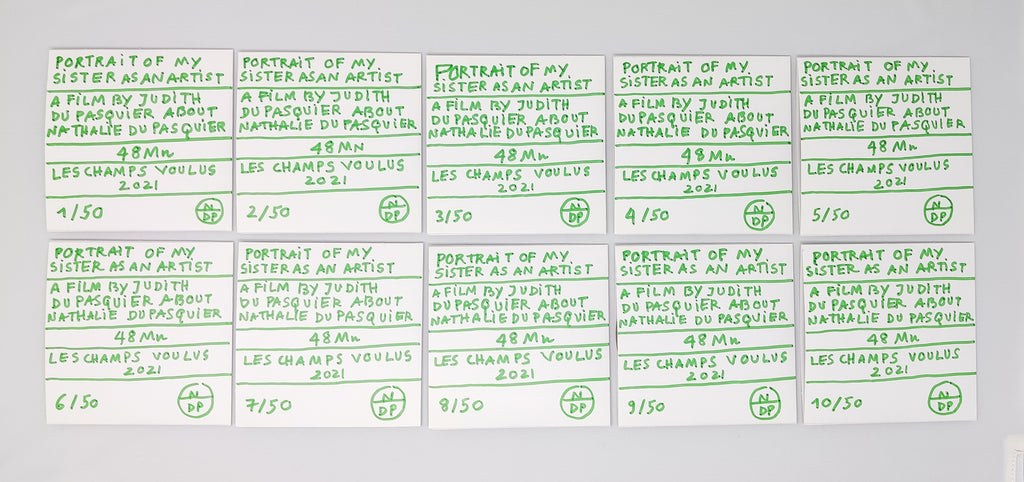 PORTRAIT OF MY
SISTER AS AN ARTIST
A FILM BY JUDITH
DU PASQUIER ABOUT
NATHALIE DU PASQUIER
48 Mn
LES CHAMPS VOULUS
2021
1/50
N
DP
PORTRAIT OF MY
SISTER AS AN ARTIST
A FILM BY JUDITH
DU PASQUIER ABOUT
NATHALIE DU PASQUIER
48 MN
LES CHAMPS VOULUS
2021
2/50
N
DP
PORTRAIT OF MY
SISTER AS AN ARTIST
A FILM BY JUDITH
DU PASQUIER ABOUT
NATHALIE DU PASQUIER
48 Mn
LES CHAMPS VOULUS
2021
3/50
N
DP
PORTRAIT OF MY
SISTER AS AN ARTIST
A FILM BY JUDITH
DU PASQUIER ABOUT
NATHALIE DU PASQUIER
48 Mn
LES CHAMPS VOULUS
2021
4/50
N
DP
PORTRAIT OF MY
SISTER AS AN ARTIST
A FILM BY JUDITH
DU PASQUIER ABOUT
NATHALIE DU PASQUIER
48 Mn
LES CHAMPS VOULUS
2021
5/50
N
DP
PORTRAIT OF MY
SISTER AS AN ARTIST
A FILM BY JUDITH
DU PASQUIER ABOUT
NATHALIE DU PASQUIER
48 Mn
LES CHAMPS VOULUS
2021
6/50
N
DP
PORTRAIT OF MY
SISTER AS AN ARTIST
A FILM BY JUDITH
DU PASQUIER ABOUT
NATHALIE DU PASQUIER
48 Mn
LES CHAMPS VOULUS
2021
7/50
N
DP
PORTRAIT OF MY
SISTER AS AN ARTIST
A FILM BY JUDITH
DU PASQUIER ABOUT
NATHALIE DU PASQUIER
48 Mn
LES CHAMPS VOULUS
2021
8/50
N
DP
PORTRAIT OF MY
SISTER AS AN ARTIST
A FILM BY JUDITH
DU PASQUIER ABOUT
NATHALIE DU PASQUIER
48 Mn
LES CHAMPS VOULUS
2021
9/50
N
DP
PORTRAIT OF MY
SISTER AS AN ARTIST
A FILM BY JUDITH
DU PASQUIER ABOUT
NATHALIE DU PASQUIER
48 Mn
LES CHAMPS VOULUS
2021
10/50
N
DP